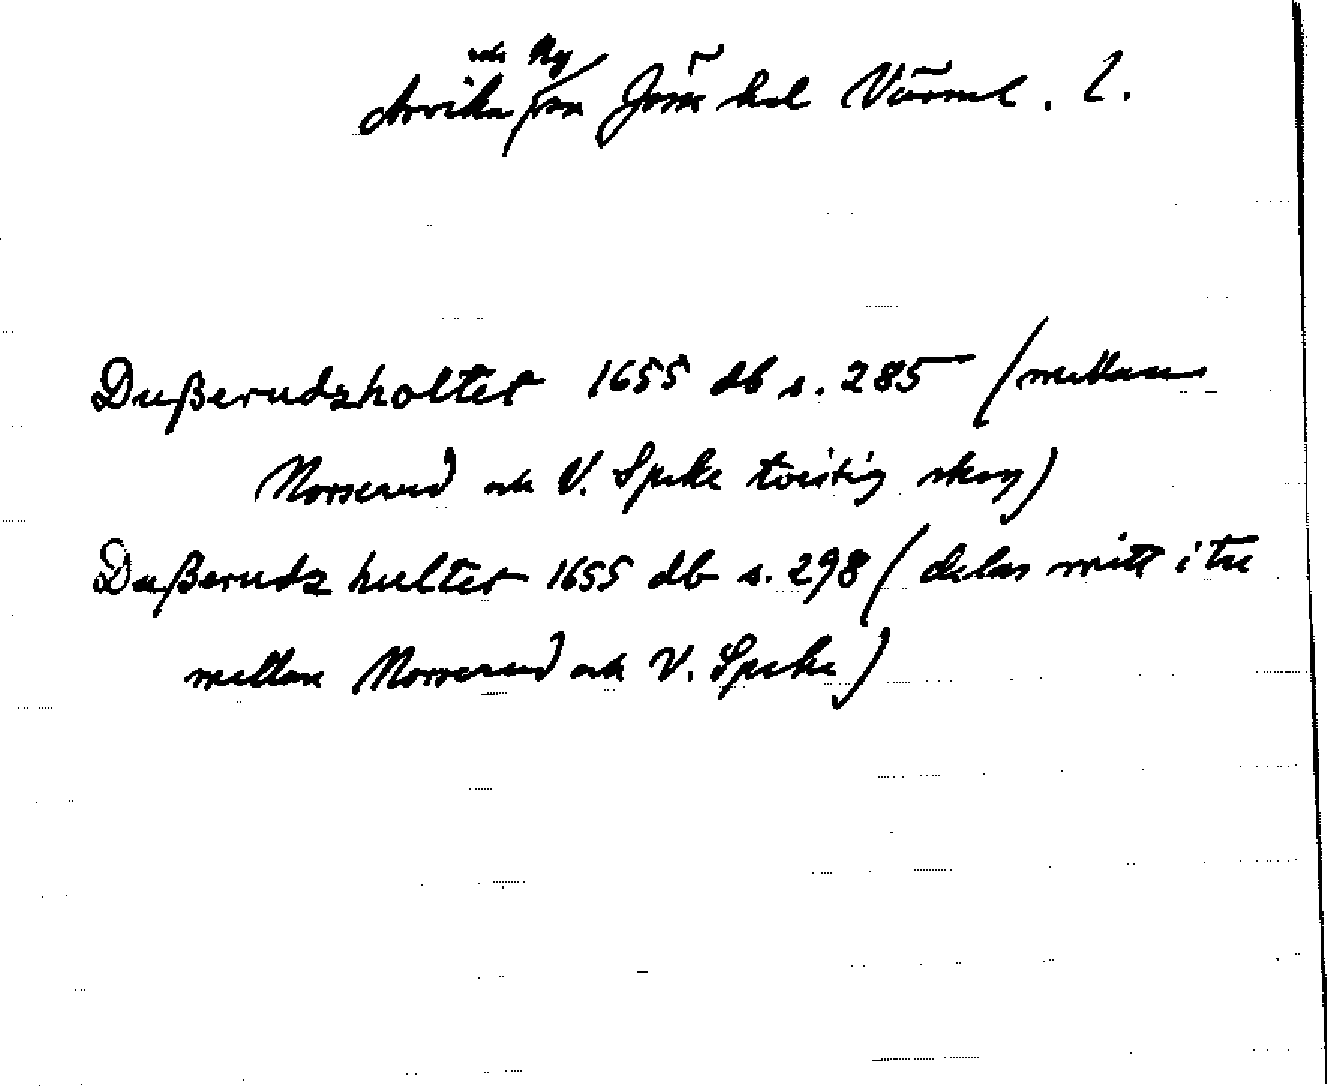 och Ny
Arvika sn Jösse hd Värml. l.
Dußerudzholtet 1655 db s. 285 (mellan
Norserud och V. Speke tvistig skog)
Dußerudz hultet 1655 db s. 298 (delas mitt i tu
mellan Norserud och V. Speke)